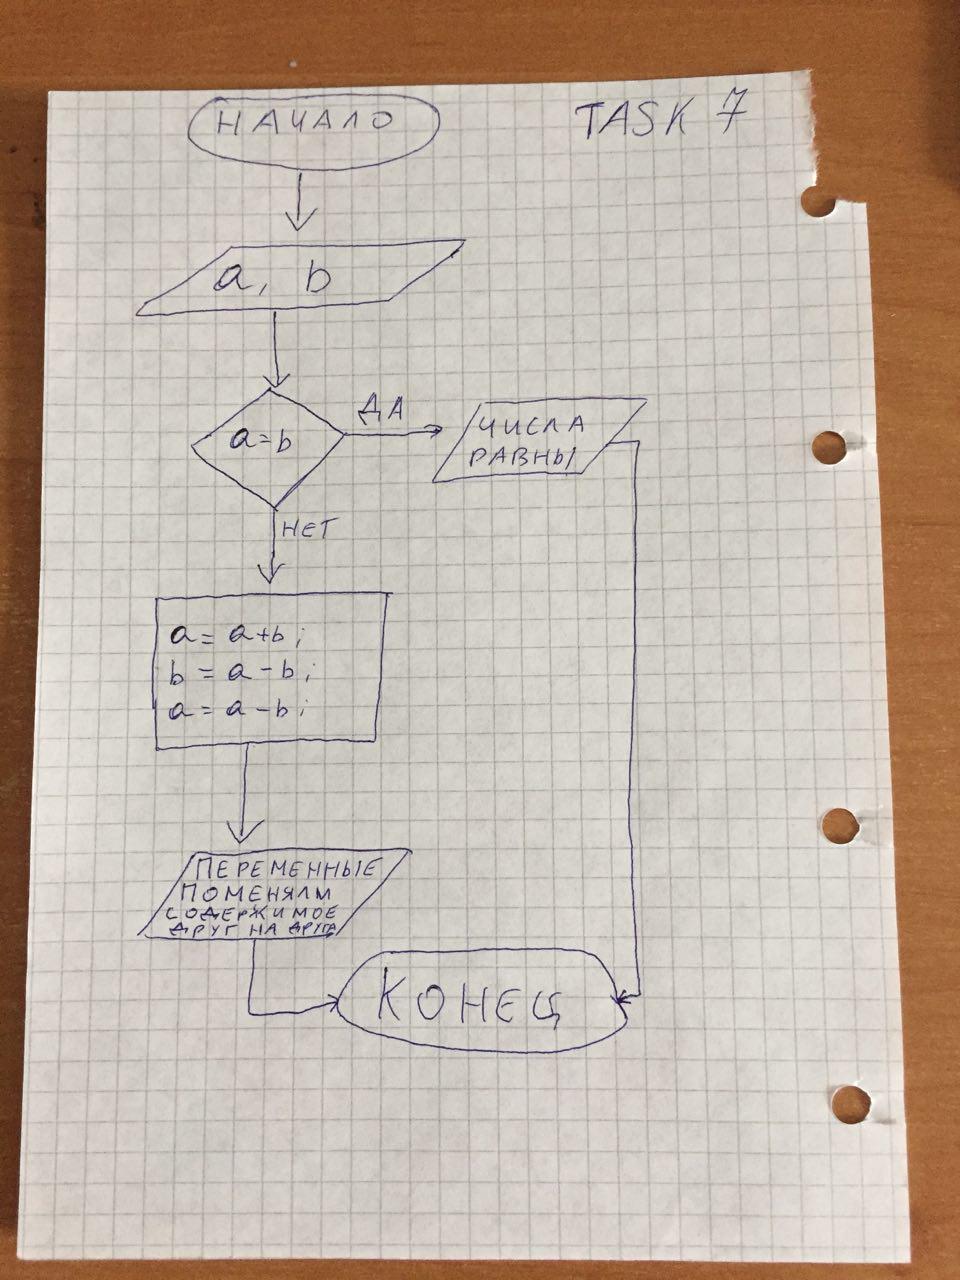 НАЧАЛО
TASK 7
a, b
a=b
ДА
ЧИСЛА
РАВНЫ
НЕТ
a = a+b;
b = a-b;
a = a-b;
ПЕРЕМЕННЫЕ
ПОМЕНЯЛИ
СОДЕРЖИМОЕ
ДРУГ НА ДРУГА
КОНЕЦ